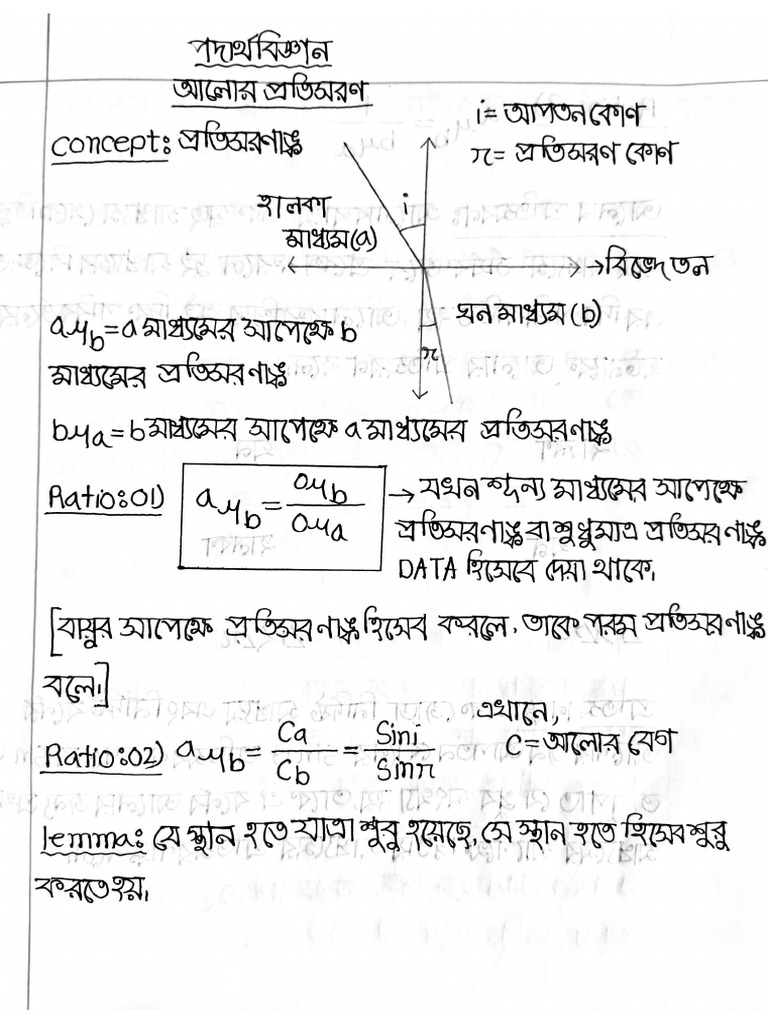 পদার্থবিজ্ঞান
আলোর প্রতিসরণ
concept: প্রতিসরণাঙ্ক
i = আপতন কোণ
r = প্রতিসরণ কোণ
i
হালকা
মাধ্যম(a)
→বিভেদতল
ঘন মাধ্যম (b)
r
aμb = a মাধ্যমের সাপেক্ষে b
মাধ্যমের প্রতিসরণাঙ্ক
bμa = b মাধ্যমের সাপেক্ষে a মাধ্যমের প্রতিসরণাঙ্ক
Ratio:01) aμb = oμb / oμa → যখন শূন্য মাধ্যমের সাপেক্ষে
প্রতিসরণাঙ্ক বা শুধুমাত্র প্রতিসরণাঙ্ক
DATA হিসেবে দেয়া থাকে।
[বায়ুর সাপেক্ষে প্রতিসরণাঙ্ক হিসেব করলে, তাকে পরম প্রতিসরণাঙ্ক
বলে।]
Ratio:02) aμb = Ca / Cb = Sini / Sinr
এখানে,
C = আলোর বেগ
lemma: যে স্থান হতে যাত্রা শুরু হয়েছে, সে স্থান হতে হিসেব শুরু
করতে হয়।